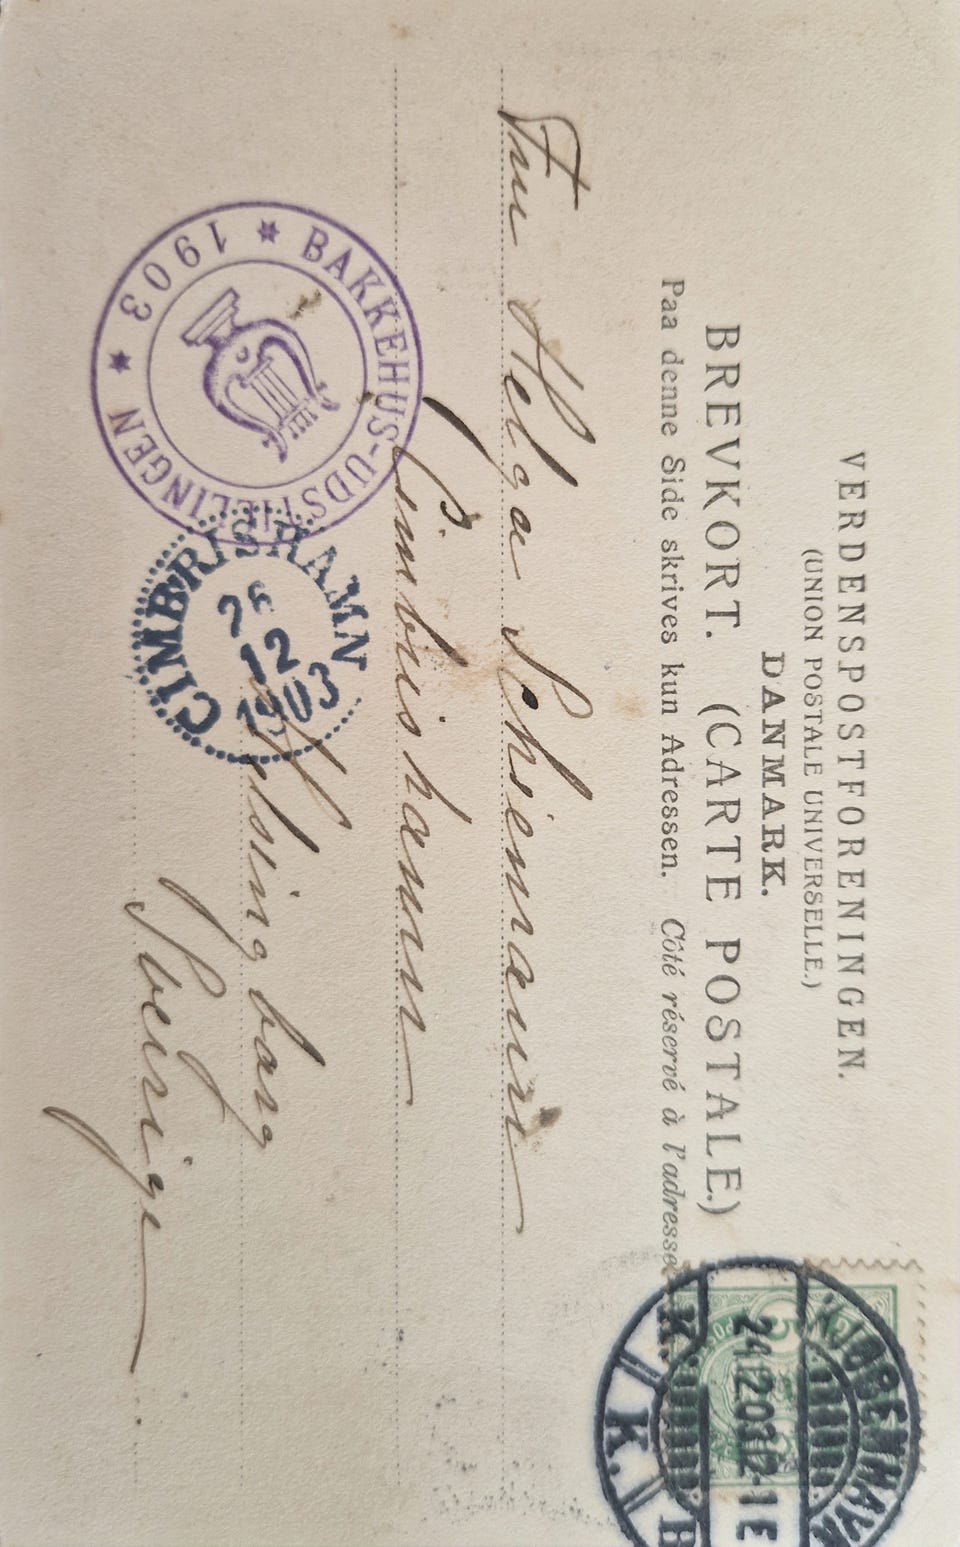 VERDENSPOSTFORENINGEN.
(UNION POSTALE UNIVERSELLE.)
DANMARK.
BREVKORT. (CARTE POSTALE.)
Paa denne Side skrives kun Adressen. Côté réservé à l'adresse
Fru Helga Schiemann
Cimbrishamn
Helsingborg
Sverige
BAKKEHUS-UDSTILLINGEN
1903
CIMBRISHAMN
12
1903
KJØBENHAVN
24.12.03.12-1E
K.
5